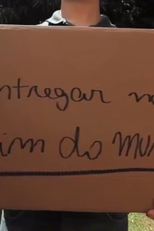 ntregar no
im do mu